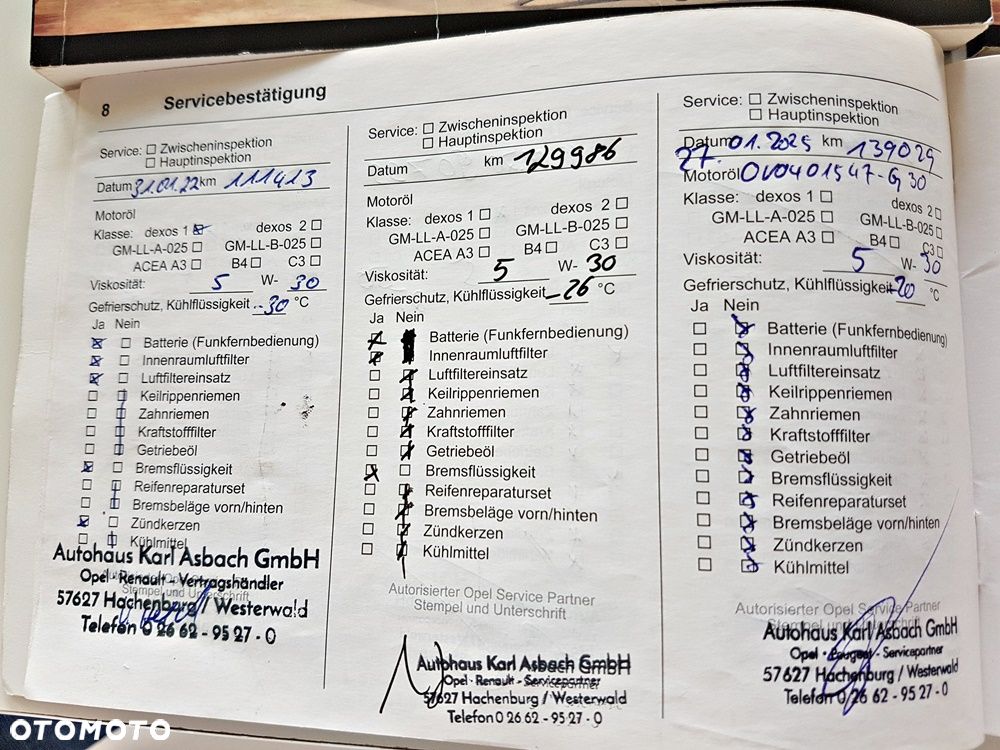 8 Servicebestätigung
Service: ☐ Zwischeninspektion
☐ Hauptinspektion
Datum 31.01.22 km 111413
Motoröl
Klasse: dexos 1 ☒ dexos 2 ☐
GM-LL-A-025 ☐ GM-LL-B-025 ☐
ACEA A3 ☐ B4 ☐ C3 ☐
Viskosität: 5 W- 30
Gefrierschutz, Kühlflüssigkeit -30 °C
Ja Nein
☒ ☐ Batterie (Funkfernbedienung)
☒ ☐ Innenraumluftfilter
☒ ☐ Luftfiltereinsatz
☐ ☒ Keilrippenriemen
☐ ☒ Zahnriemen
☐ ☒ Kraftstofffilter
☐ ☒ Getriebeöl
☒ ☐ Bremsflüssigkeit
☐ ☒ Reifenreparaturset
☐ ☒ Bremsbeläge vorn/hinten
☒ ☐ Zündkerzen
☐ ☒ Kühlmittel
Stempel und Unterschrift
Autohaus Karl Asbach GmbH
Opel · Renault - Vertragshändler
57627 Hachenburg / Westerwald
Telefon 0 26 62 - 95 27 - 0
Service: ☐ Zwischeninspektion
☐ Hauptinspektion
Datum km 129986
Motoröl
Klasse: dexos 1 ☐ dexos 2 ☐
GM-LL-A-025 ☐ GM-LL-B-025 ☐
ACEA A3 ☐ B4 ☐ C3 ☐
Viskosität: 5 W- 30
Gefrierschutz, Kühlflüssigkeit -26 °C
Ja Nein
☒ ☒ Batterie (Funkfernbedienung)
☒ ☒ Innenraumluftfilter
☐ ☒ Luftfiltereinsatz
☐ ☒ Keilrippenriemen
☐ ☒ Zahnriemen
☐ ☒ Kraftstofffilter
☐ ☒ Getriebeöl
☒ ☐ Bremsflüssigkeit
☐ ☒ Reifenreparaturset
☐ ☒ Bremsbeläge vorn/hinten
☐ ☒ Zündkerzen
☐ ☒ Kühlmittel
Autorisierter Opel Service Partner
Stempel und Unterschrift
Autohaus Karl Asbach GmbH
Opel · Renault - Servicepartner
57627 Hachenburg / Westerwald
Telefon 0 26 62 - 95 27 - 0
Service: ☐ Zwischeninspektion
☐ Hauptinspektion
Datum 27.01.2025 km 139029
Motoröl OV0401547-G30
Klasse: dexos 1 ☐ dexos 2 ☐
GM-LL-A-025 ☐ GM-LL-B-025 ☐
ACEA A3 ☐ B4 ☐ C3 ☐
Viskosität: 5 W- 30
Gefrierschutz, Kühlflüssigkeit -20 °C
Ja Nein
☐ ☒ Batterie (Funkfernbedienung)
☐ ☒ Innenraumluftfilter
☐ ☒ Luftfiltereinsatz
☐ ☒ Keilrippenriemen
☐ ☒ Zahnriemen
☐ ☒ Kraftstofffilter
☐ ☒ Getriebeöl
☐ ☒ Bremsflüssigkeit
☐ ☒ Reifenreparaturset
☐ ☒ Bremsbeläge vorn/hinten
☐ ☒ Zündkerzen
☐ ☒ Kühlmittel
Autorisierter Opel Service Partner
Stempel und Unterschrift
Autohaus Karl Asbach GmbH
Opel · Peugeot - Servicepartner
57627 Hachenburg / Westerwald
Telefon 0 26 62 - 95 27 - 0
OTOMOTO